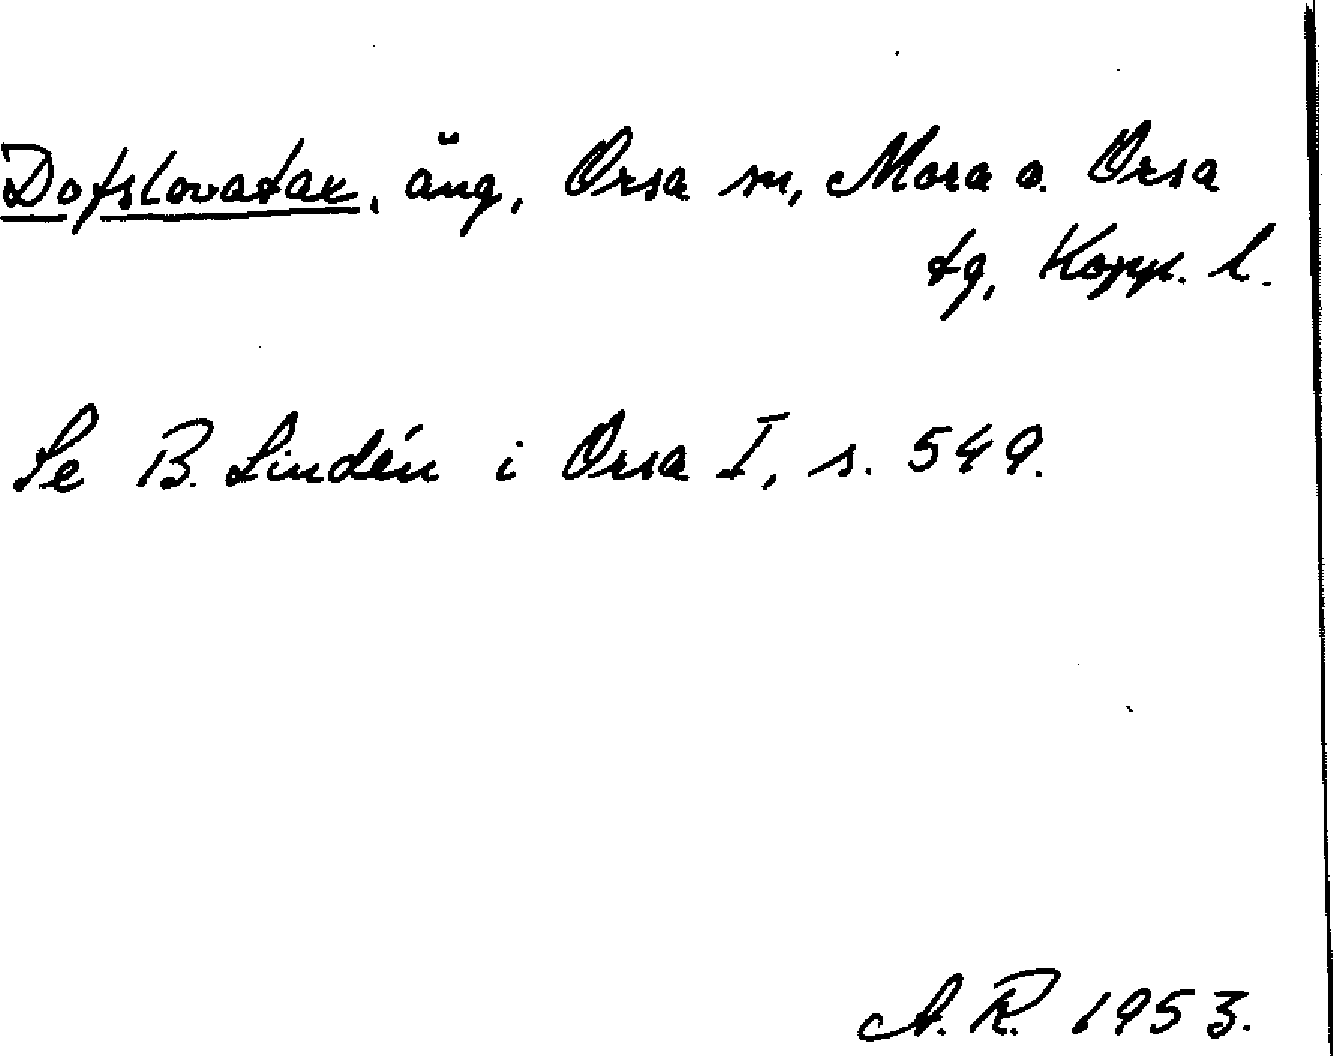 Dofslovatak, äng, Orsa sn, Mora o. Orsa
tg, Kopp. l.
Se B. Lindén i Orsa I, s. 549.
A. R. 1953.